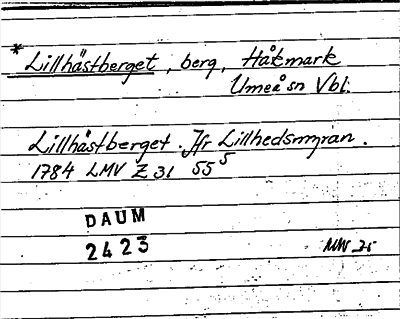 * Lillhästberget, berg, Håkmark
Umeå sn Vbl.
Lillhästberget. Jfr Lillhedsmyran.
1784 LMV Z 31 55⁵
DAUM
2423
MW 75